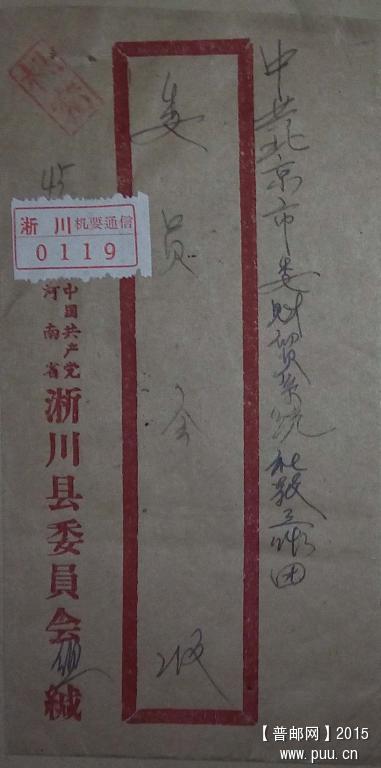 中共北京市委财贸系统社教工作团
委员会
收
机密
45
淅川 机要通信
0119
中国共产党
河南省
淅川县委員会
缄
【普邮网】2015
www.puu.cn